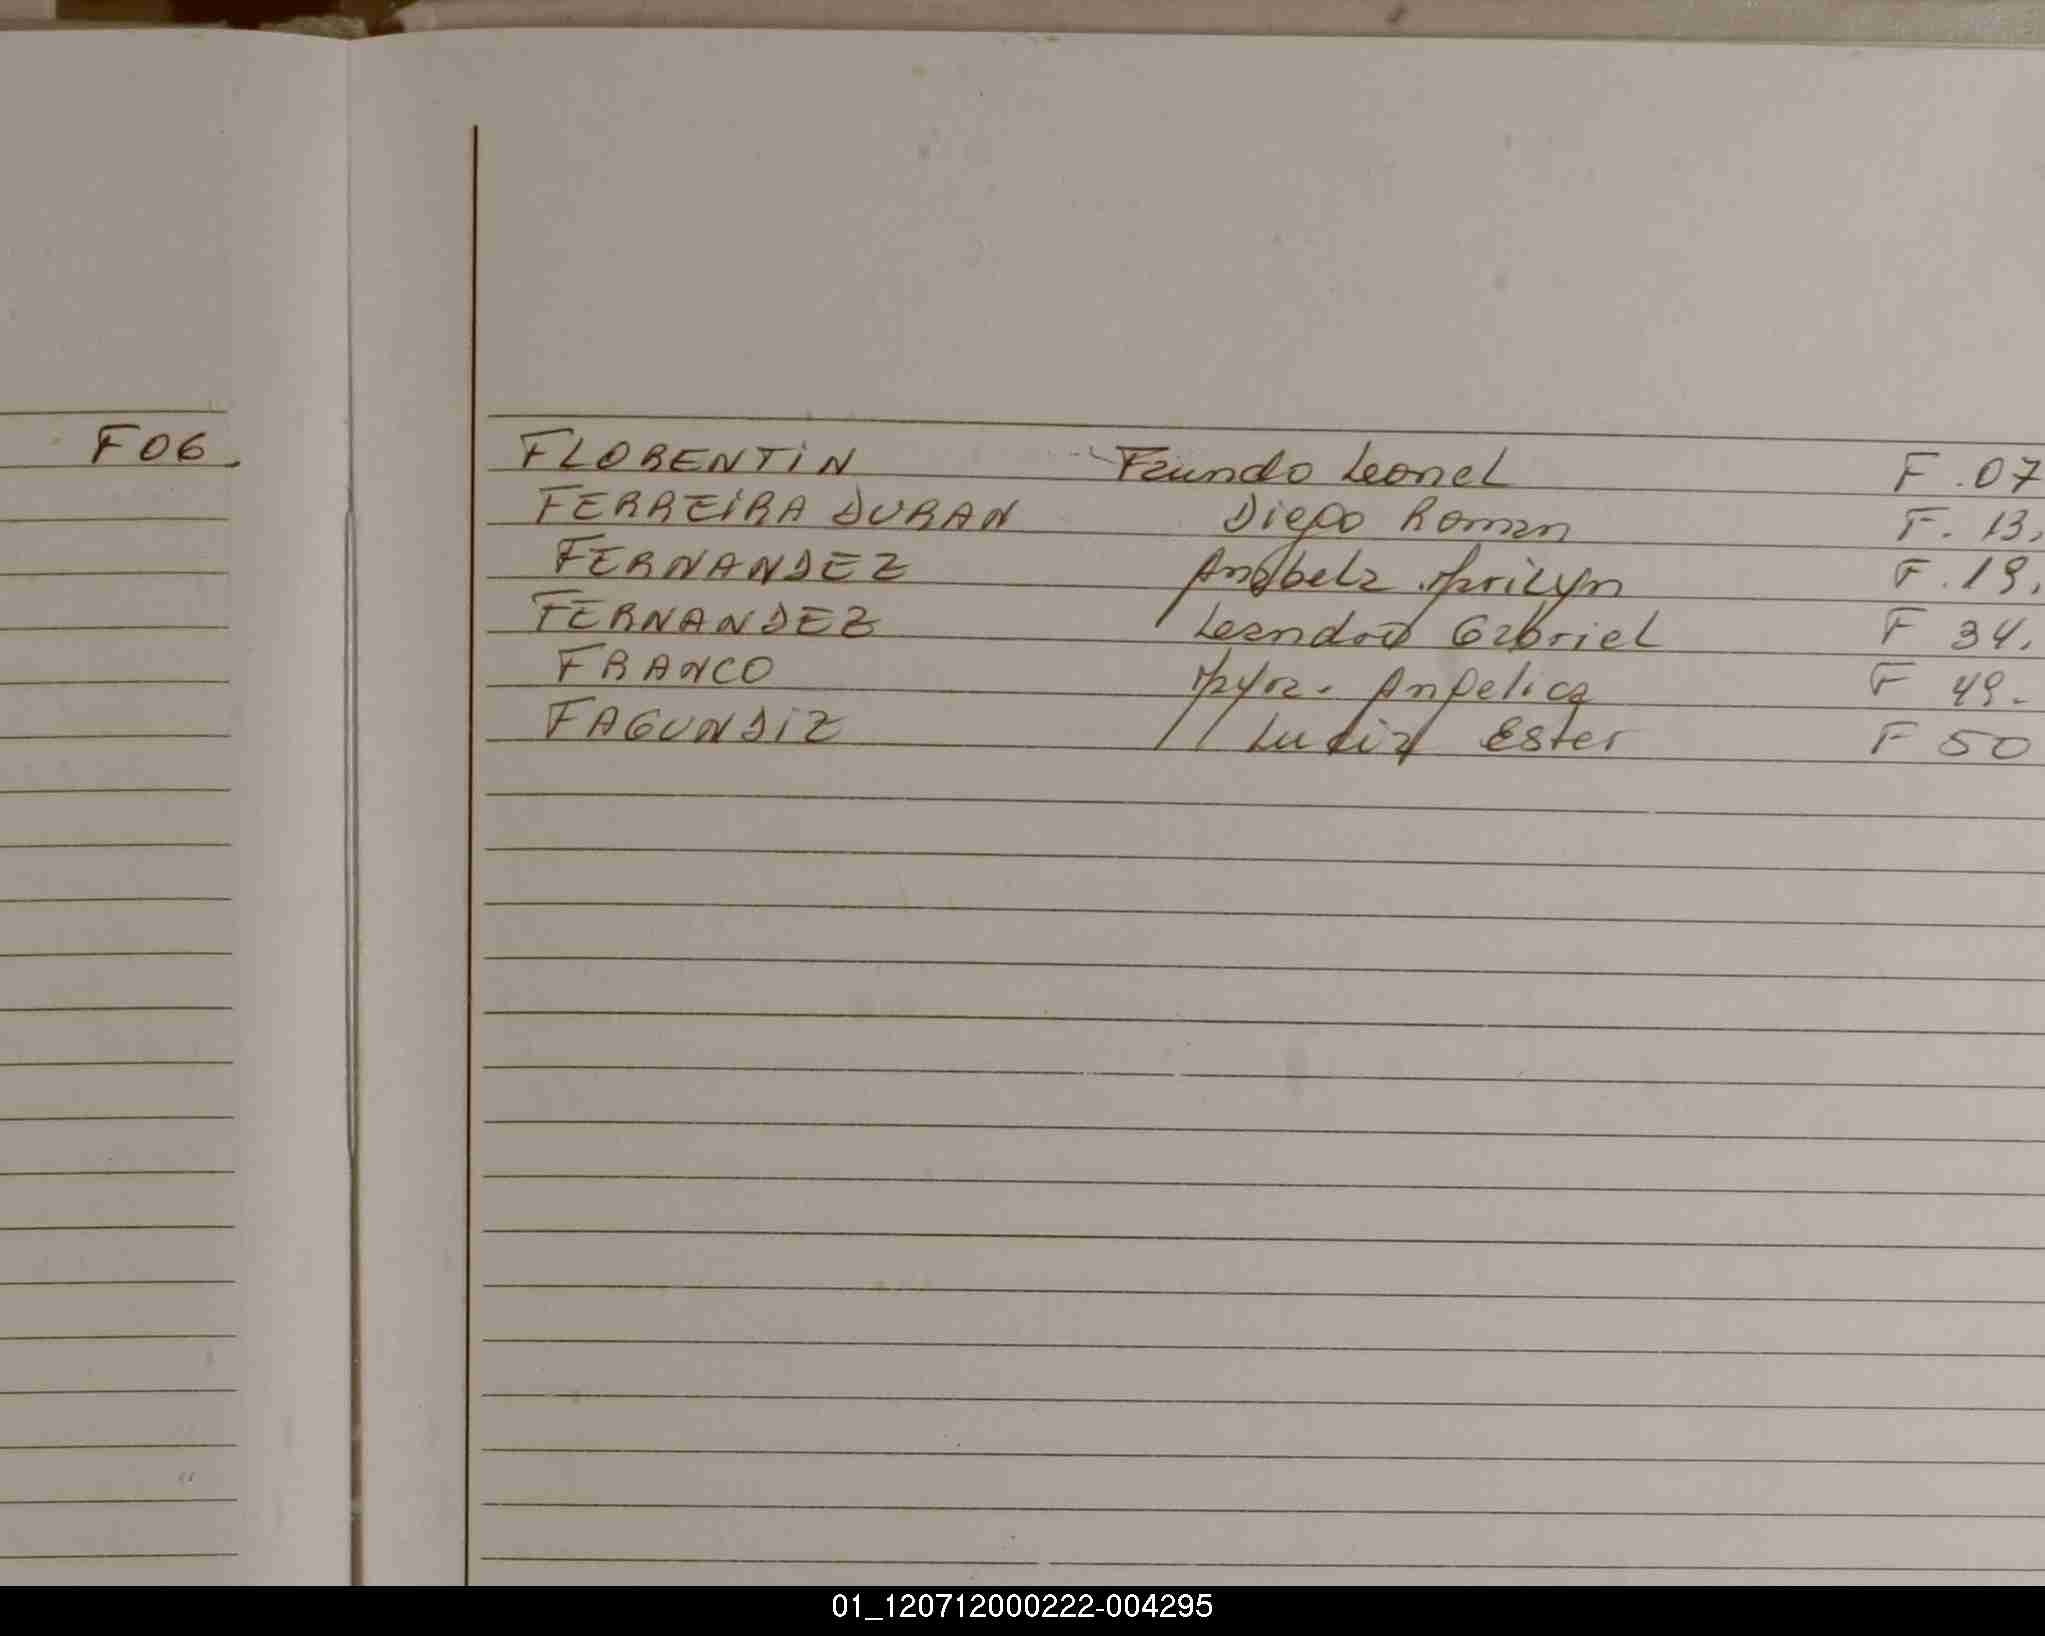 F06.
FLORENTIN Fcundo Leonel F.07
FERREIRA DURAN Diego Roman F. 13.
FERNANDEZ Anabela Marilyn F.19.
FERNANDEZ Leandro Gabriel F 34.
FRANCO Angelica F 49.
FAGUNDIZ Ester F 50
01_120712000222-004295